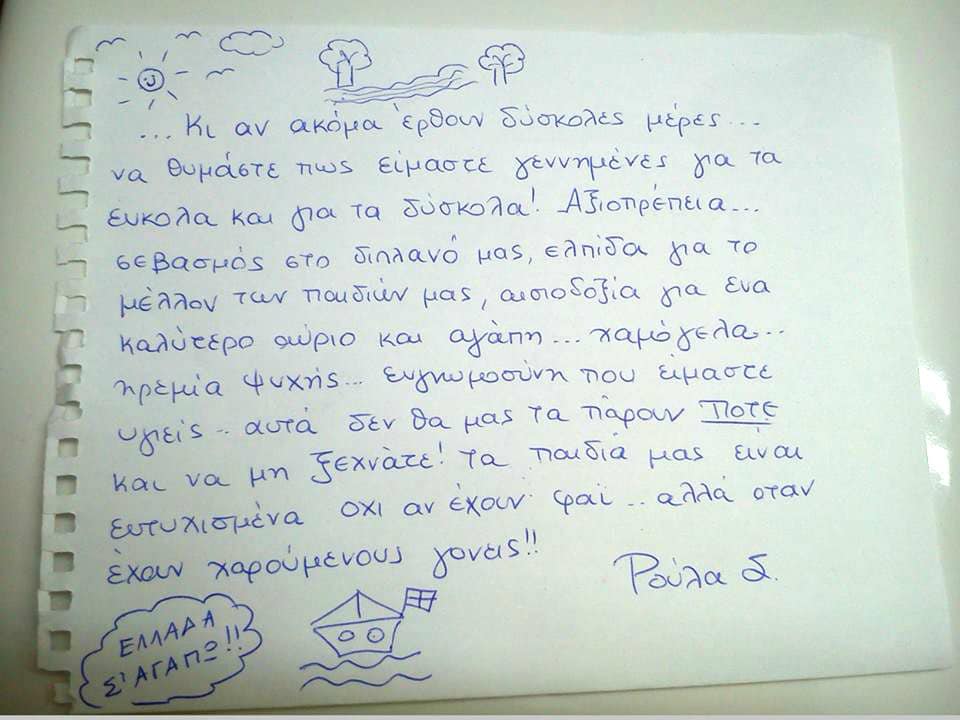 ... Κι αν ακόμα έρθουν δύσκολες μέρες...
να θυμάστε πως είμαστε γεννημένες για τα
ευκολα και για τα δύσκολα! Αξιοπρέπεια...
σεβασμός στο διπλανό μας, ελπίδα για το
μέλλον των παιδιών μας, αισιοδοξία για ενα
καλύτερο αύριο και αγάπη... χαμόγελα...
ηρεμία ψυχής... ευγνωμοσύνη που είμαστε
υγιείς.. αυτά δεν θα μας τα πάρουν ΠΟΤΕ
και να μη ξεχνάτε! Τα παιδιά μας είναι
ευτυχισμένα οχι αν έχουν φαϊ.. αλλά οταν
έχουν χαρούμενους γονείς!!
Ρούλα Δ.
ΕΛΛΑΔΑ
Σ' ΑΓΑΠΩ!!